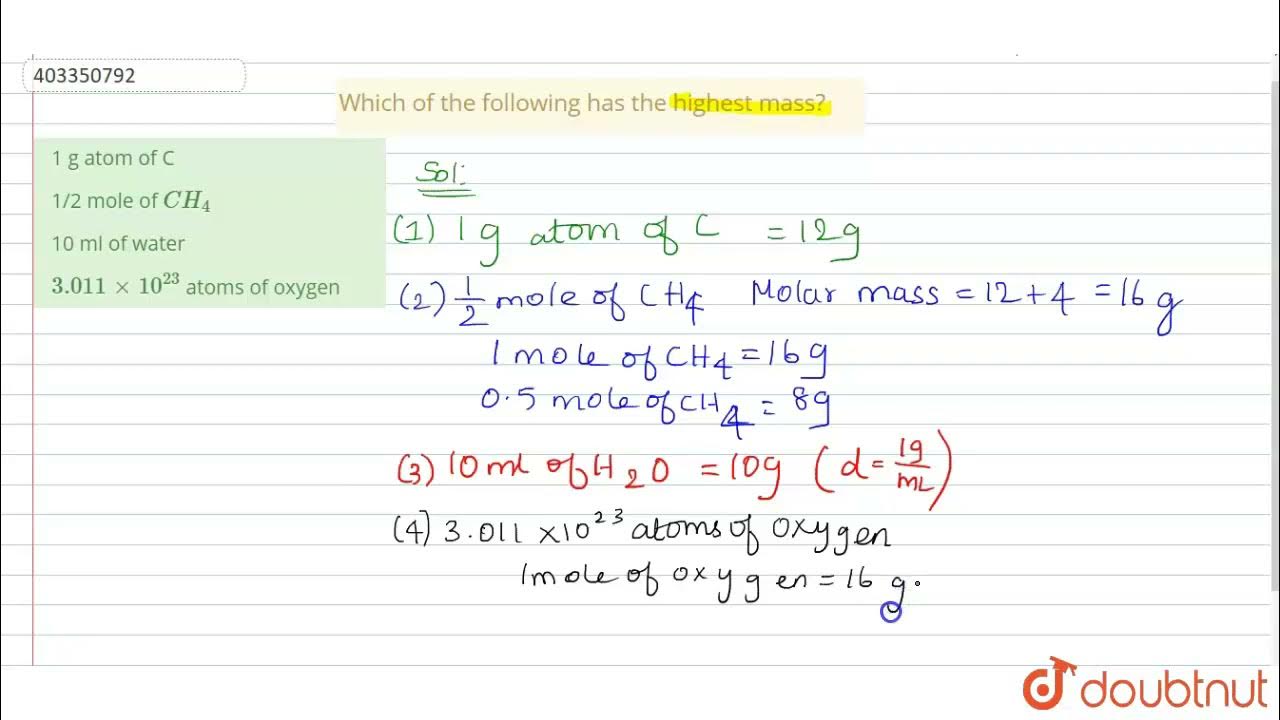 403350792
Which of the following has the highest mass?
1 g atom of C
1/2 mole of CH₄
10 ml of water
3.011 × 10²³ atoms of oxygen
Sol:
(1) 1 g atom of C = 12g
(2) 1/2 mole of CH₄ Molar mass = 12 + 4 = 16 g
1 mole of CH₄ = 16 g
0.5 mole of CH₄ = 8g
(3) 10 ml of H₂O = 10g (d = 1g/mL)
(4) 3.011 × 10²³ atoms of oxygen
1mole of oxygen = 16 g.
doubtnut